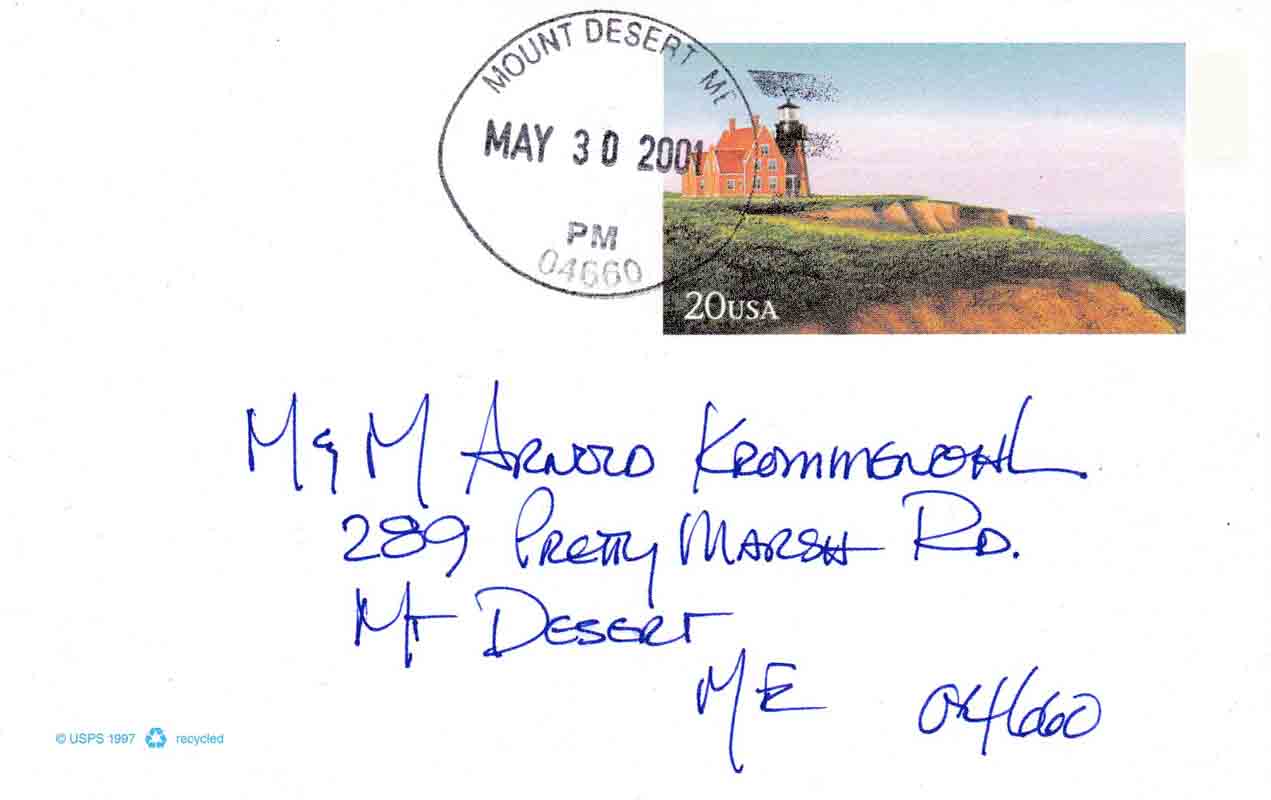 MOUNT DESERT ME
MAY 30 2001
PM
04660
20USA
M & M ARNOLD KROMMENOHL
289 PRETTY MARSH RD.
Mt DESERT
ME 04660
© USPS 1997 recycled